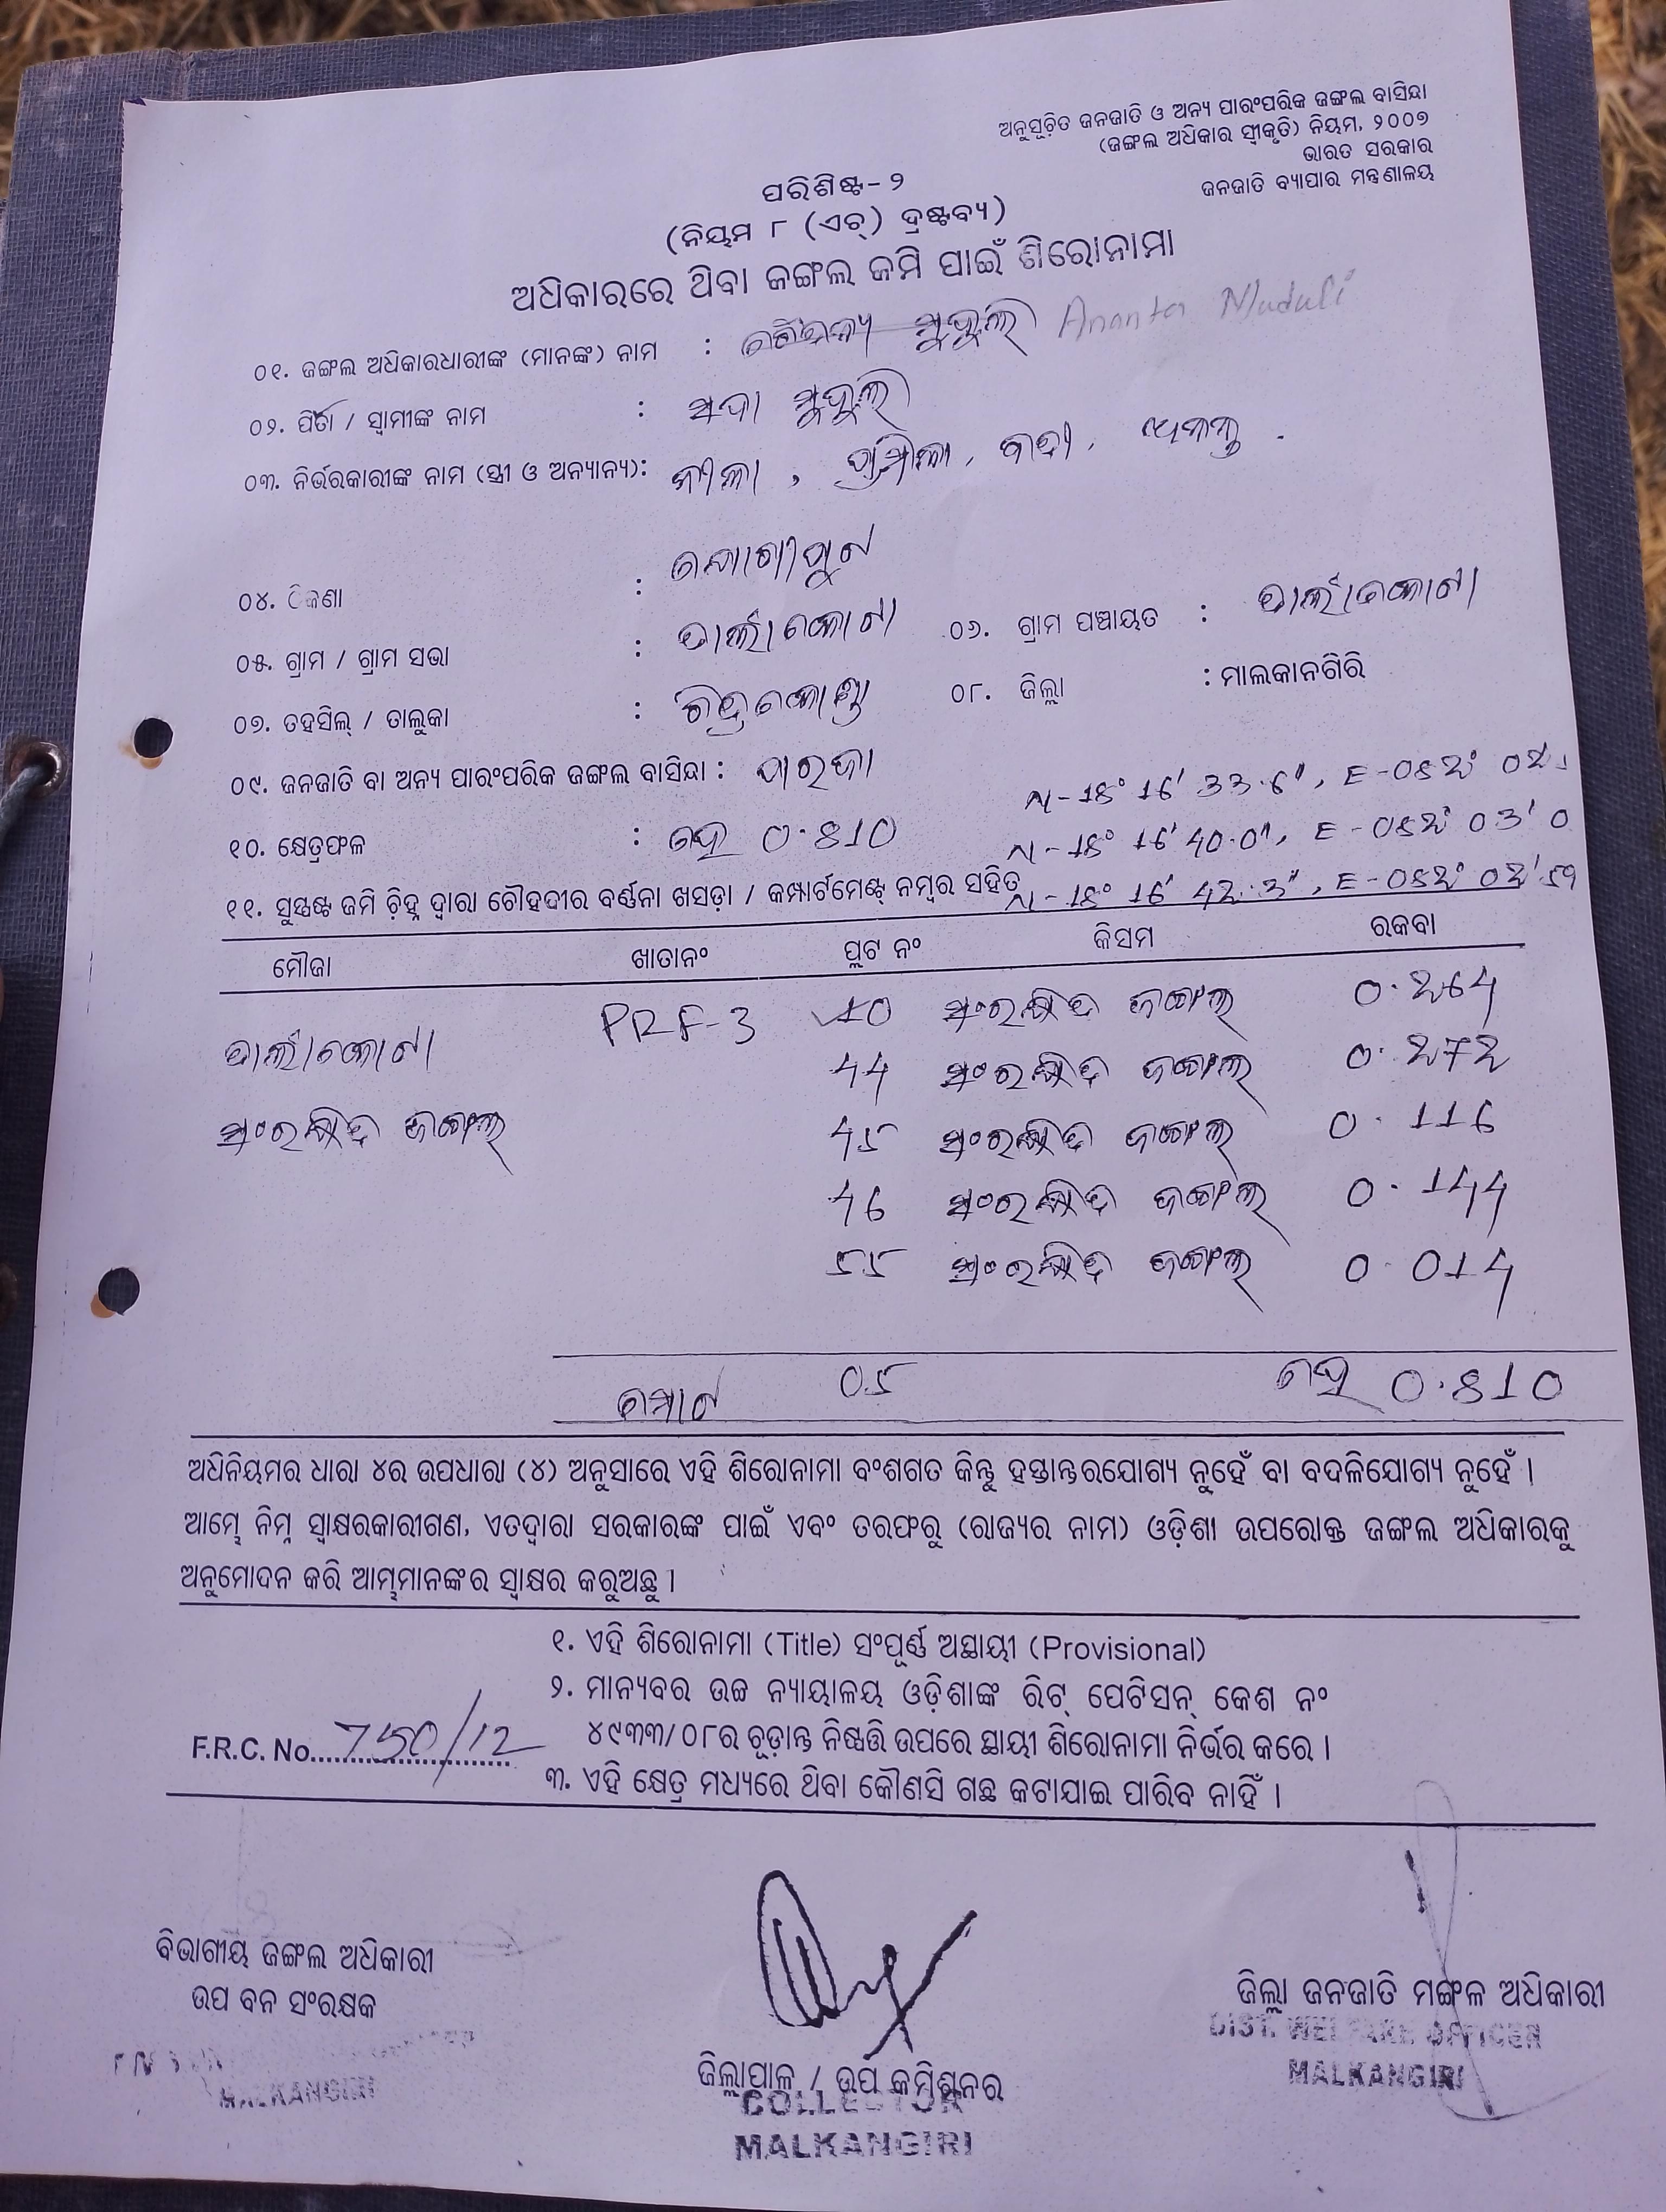 ଅନୁସୂଚିତ ଜନଜାତି ଓ ଅନ୍ୟ ପାରଂପରିକ ଜଙ୍ଗଲ ବାସିନ୍ଦା
(ଜଙ୍ଗଲ ଅଧିକାର ସ୍ୱୀକୃତି) ନିୟମ, ୨୦୦୭
ଭାରତ ସରକାର
ଜନଜାତି ବ୍ୟାପାର ମନ୍ତ୍ରଣାଳୟ
ପରିଶିଷ୍ଟ-୨
(ନିୟମ ୮ (ଏଚ୍) ଦ୍ରଷ୍ଟବ୍ୟ)
ଅଧିକାରରେ ଥିବା ଜଙ୍ଗଲ ଜମି ପାଇଁ ଶିରୋନାମା
୦୧. ଜଙ୍ଗଲ ଅଧିକାରଧାରୀଙ୍କ (ମାନଙ୍କ) ନାମ : ଚୈତନ୍ୟ ମୁଦୁଲି Ananta Muduli
୦୨. ପିତା / ସ୍ୱାମୀଙ୍କ ନାମ : ସଦା ମୁଦୁଲି
୦୩. ନିର୍ଭରକାରୀଙ୍କ ନାମ (ସ୍ତ୍ରୀ ଓ ଅନ୍ୟାନ୍ୟ):
୦୪. ଠିକଣା :
୦୫. ଗ୍ରାମ / ଗ୍ରାମ ସଭା :
୦୬. ଗ୍ରାମ ପଞ୍ଚାୟତ :
୦୭. ତହସିଲ୍ / ତାଲୁକା : ଚିତ୍ରକୋଣ୍ଡା
୦୮. ଜିଲ୍ଲା : ମାଲକାନଗିରି
୦୯. ଜନଜାତି ବା ଅନ୍ୟ ପାରଂପରିକ ଜଙ୍ଗଲ ବାସିନ୍ଦା : ପରଜା
N-18° 16' 33.6", E-082° 02'
୧୦. କ୍ଷେତ୍ରଫଳ : ହେ 0.810
N-18° 16' 40.0", E-082° 03' 0
୧୧. ସୁସ୍ପଷ୍ଟ ଜମି ଚିହ୍ନ ଦ୍ୱାରା ଚୌହଦୀର ବର୍ଣ୍ଣନା ଖସଡ଼ା / କମ୍ପାର୍ଟମେଣ୍ଟ୍ ନମ୍ବର ସହିତ
N-18° 16' 42.3", E-082° 02' 59
ମୌଜା ଖାତାନଂ ପ୍ଲଟ ନଂ କିସମ ରକବା
PRF-3 10 ସଂରକ୍ଷିତ ଜଙ୍ଗଲ 0.264
44 ସଂରକ୍ଷିତ ଜଙ୍ଗଲ 0.272
ସଂରକ୍ଷିତ ଜଙ୍ଗଲ 45 ସଂରକ୍ଷିତ ଜଙ୍ଗଲ 0.116
46 ସଂରକ୍ଷିତ ଜଙ୍ଗଲ 0.144
55 ସଂରକ୍ଷିତ ଜଙ୍ଗଲ 0.014
ମୋଟ 05 ହେ 0.810
ଅଧିନିୟମର ଧାରା ୪ର ଉପଧାରା (୪) ଅନୁସାରେ ଏହି ଶିରୋନାମା ବଂଶଗତ କିନ୍ତୁ ହସ୍ତାନ୍ତରଯୋଗ୍ୟ ନୁହେଁ ବା ବଦଳିଯୋଗ୍ୟ ନୁହେଁ ।
ଆମ୍ଭେ ନିମ୍ନ ସ୍ୱାକ୍ଷରକାରୀଗଣ, ଏତଦ୍ୱାରା ସରକାରଙ୍କ ପାଇଁ ଏବଂ ତରଫରୁ (ରାଜ୍ୟର ନାମ) ଓଡ଼ିଶା ଉପରୋକ୍ତ ଜଙ୍ଗଲ ଅଧିକାରକୁ
ଅନୁମୋଦନ କରି ଆମ୍ଭମାନଙ୍କର ସ୍ୱାକ୍ଷର କରୁଅଛୁ ।
୧. ଏହି ଶିରୋନାମା (Title) ସଂପୂର୍ଣ୍ଣ ଅସ୍ଥାୟୀ (Provisional)
୨. ମାନ୍ୟବର ଉଚ୍ଚ ନ୍ୟାୟାଳୟ ଓଡ଼ିଶାଙ୍କ ରିଟ୍ ପେଟିସନ୍ କେଶ ନଂ
୪୯୩୩/୦୮ର ଚୂଡ଼ାନ୍ତ ନିଷ୍ପତ୍ତି ଉପରେ ସ୍ଥାୟୀ ଶିରୋନାମା ନିର୍ଭର କରେ ।
F.R.C. No. 750/12
୩. ଏହି କ୍ଷେତ୍ର ମଧ୍ୟରେ ଥିବା କୌଣସି ଗଛ କଟାଯାଇ ପାରିବ ନାହିଁ ।
ବିଭାଗୀୟ ଜଙ୍ଗଲ ଅଧିକାରୀ
ଉପ ବନ ସଂରକ୍ଷକ
MALKANGIRI
ଜିଲ୍ଲାପାଳ / ଉପ କମିଶ୍ନର
COLLECTOR
MALKANGIRI
ଜିଲ୍ଲା ଜନଜାତି ମଙ୍ଗଳ ଅଧିକାରୀ
DIST. WELFARE OFFICER
MALKANGIRI